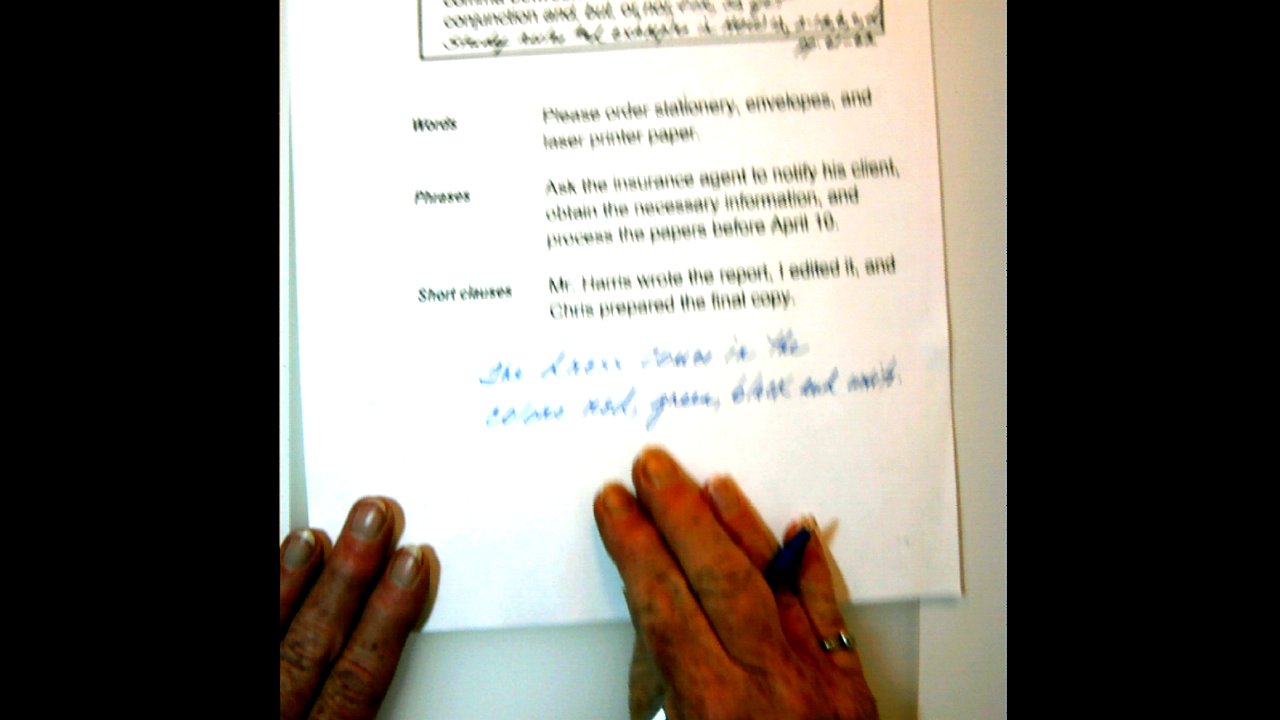 conjunction and, but, or, nor,
Study
Words
Please order stationery, envelopes, and
laser printer paper.
Phrases
Ask the insurance agent to notify his client,
obtain the necessary information, and
process the papers before April 10.
Short clauses
Mr. Harris wrote the report, I edited it, and
Chris prepared the final copy.
The dress comes in the
colors red, green, black and white.